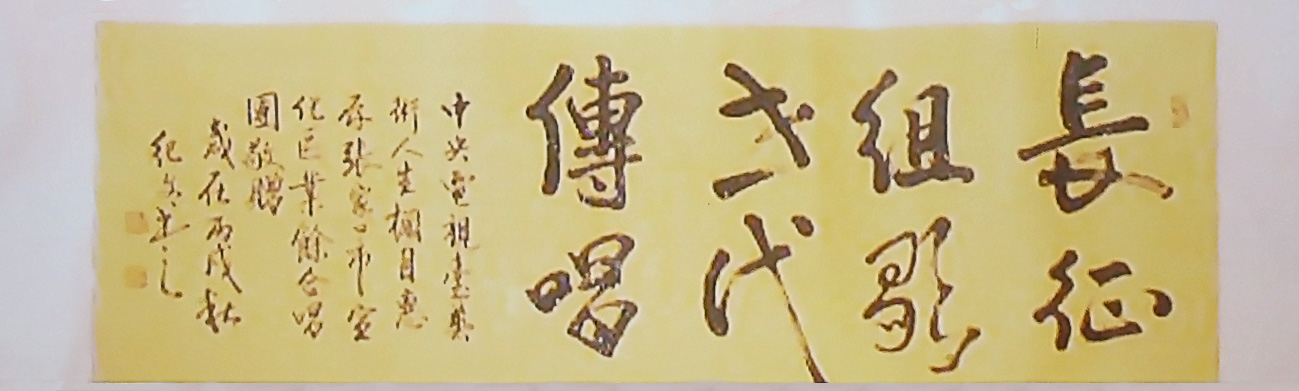 長征
組歌
世代
傳唱
中央電視臺藝
術人生欄目惠
存張家口市宣
化區業餘合唱
團敬贈
歲在丙戌秋
紀